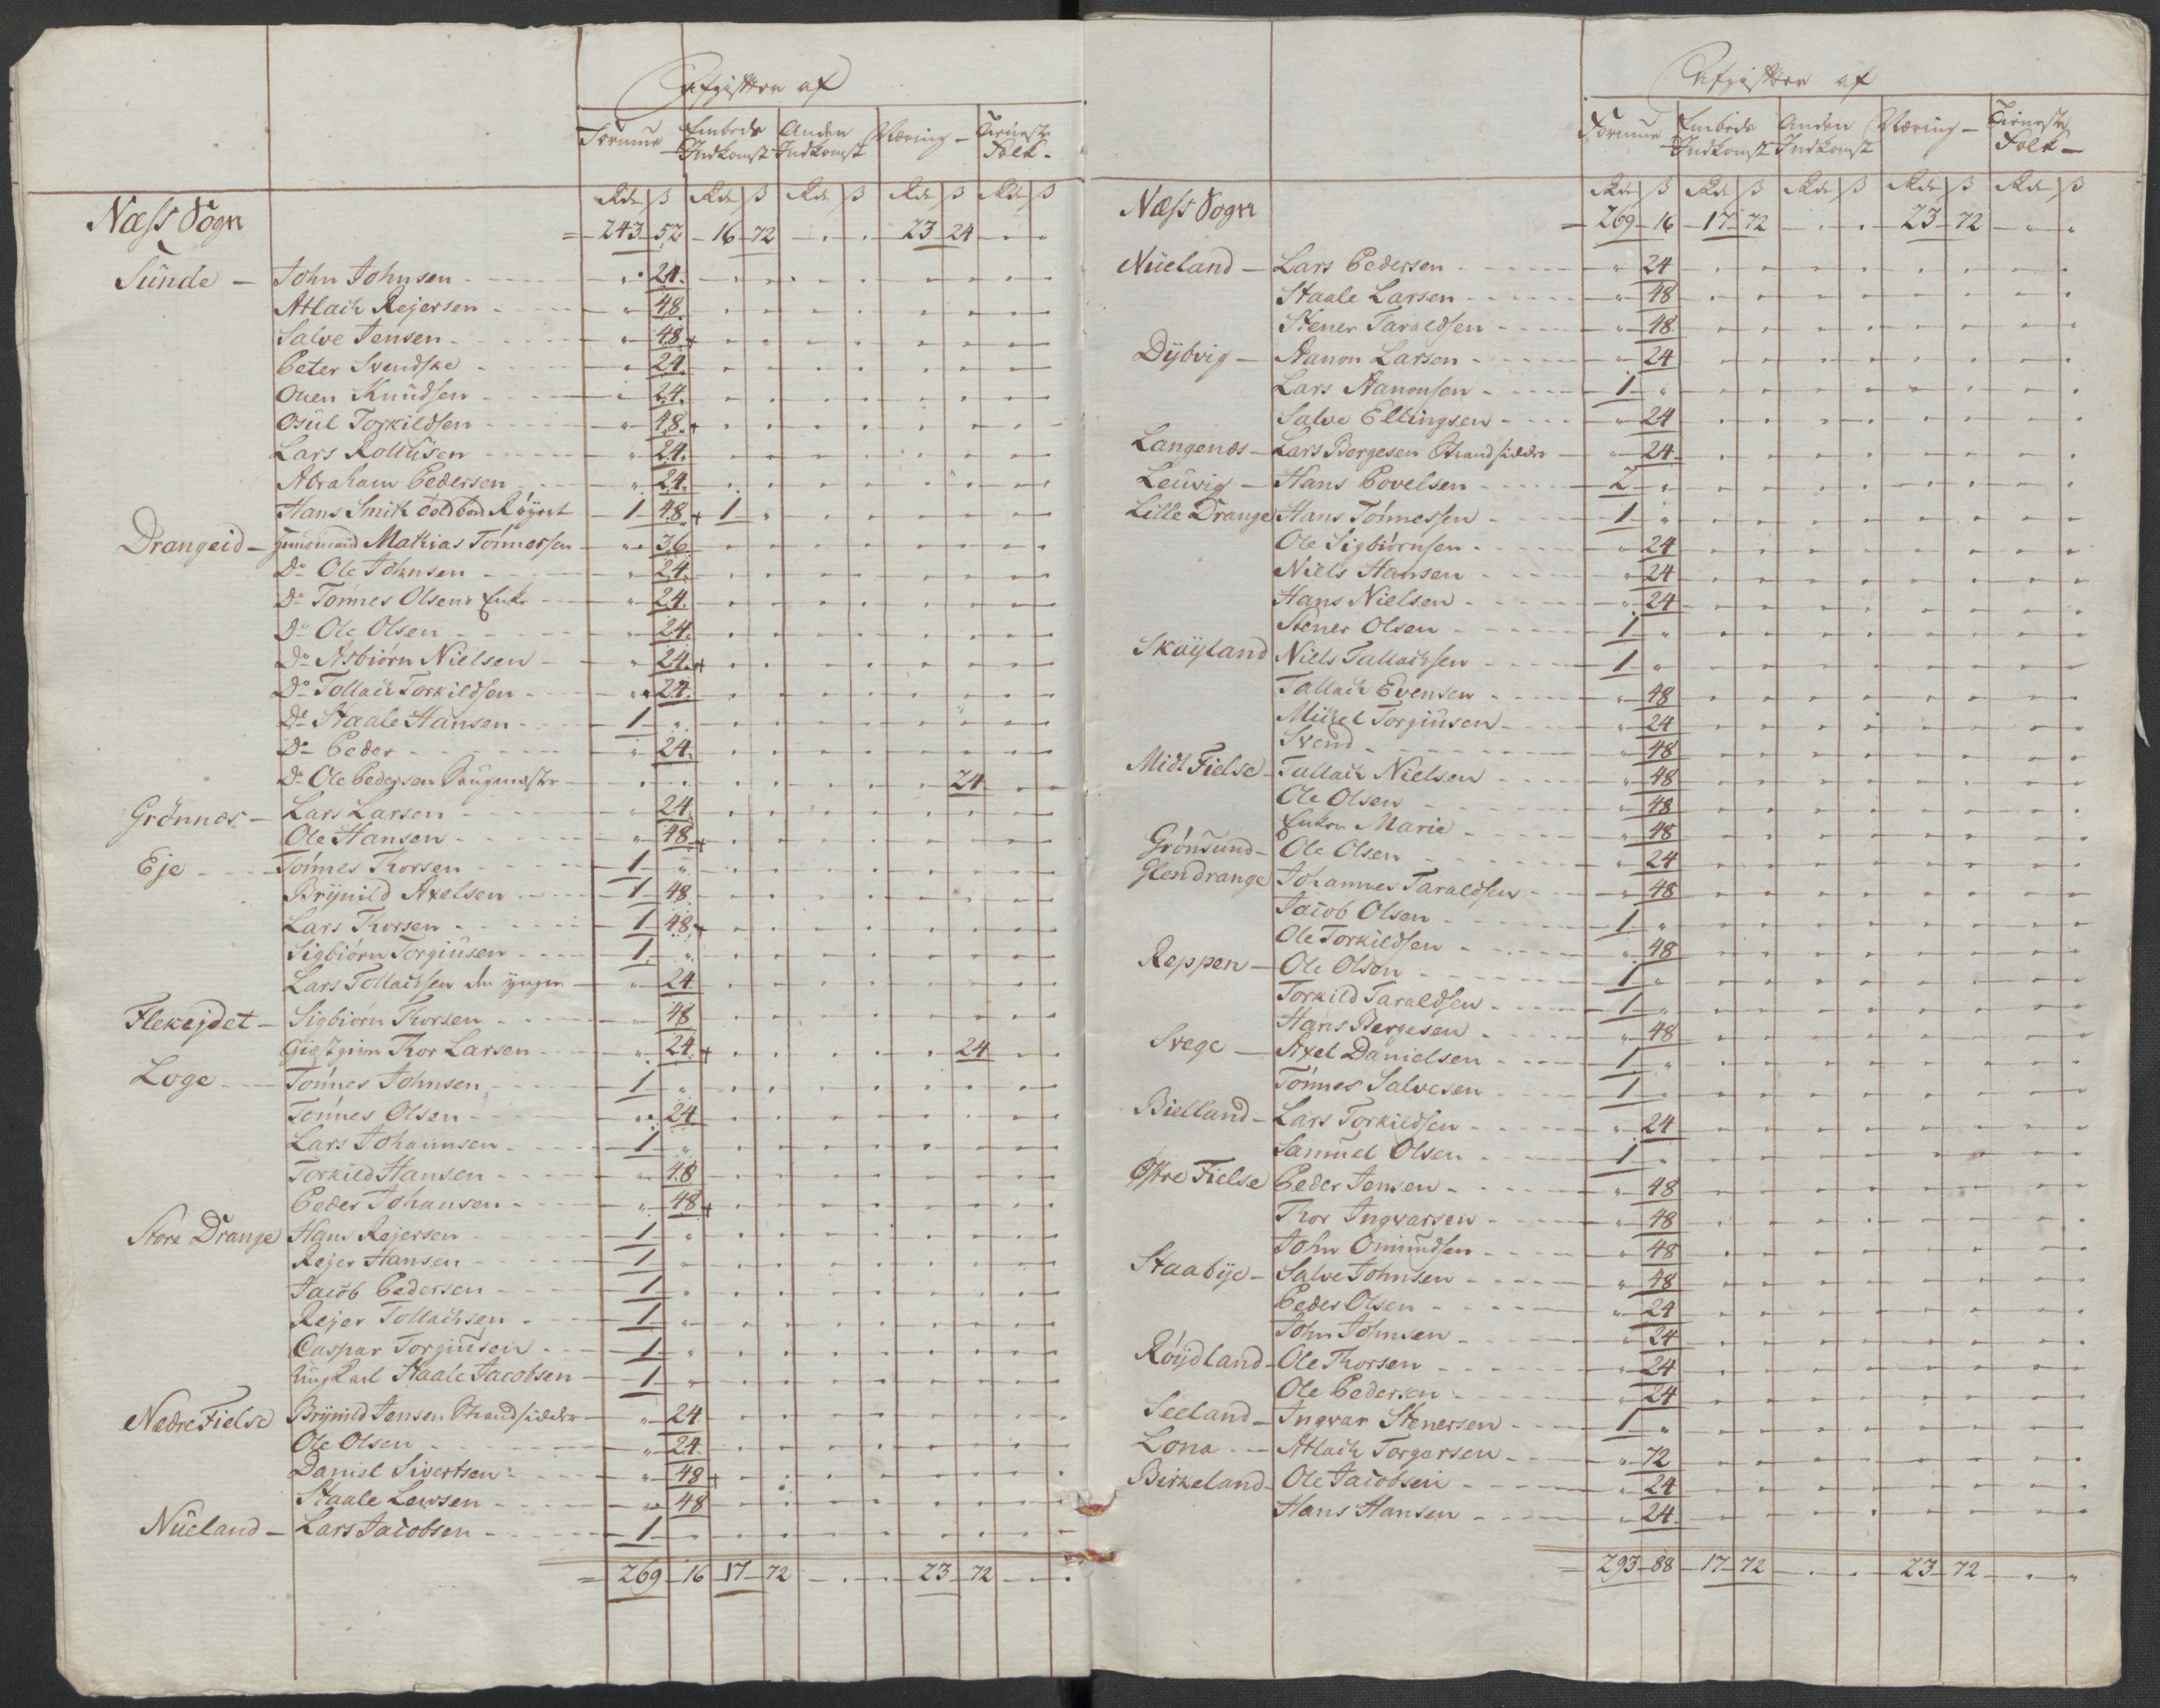 Afgifter af
Formue Embeds Indkomst Anden Indkomst Næring Tieneste Folk
Rd ß Rd ß Rd ß Rd ß Rd ß
Næss Sogn
= 243 52 16 72 23 24
Sünde - John Johnsen 24
Atlach Rejersen 48
Salve Jensen 48 +
Peter Svendske 24
Ouen Knudsen 24
Osül Torkildsen 48 +
Lars Rollüsen 24
Abraham Pedersen 24
Hans Smith 1 48 + 1
Drangeid - Mathias Tönnessen 36
Do Ole Johnsen 24
Do Tönnes Olsens Enke 24
Do Ole Olsen 24
Do Asbiörn Nielsen 24 +
Do Tollach Torkildsen 24
Do Staale Hansen 1
Do Peder 24
Do Ole Pedersen Saugmester 24
Grönnæs - Lars Larsen 24
Ole Hansen 48 +
Eje - Tönnes Thorsen 1
Brynild Axelsen 1 48
Lars Thorsen 1 48 +
Sigbiörn Torgiusen 1
Lars Tollachsen den yngre 24
Flekejdet - Sigbiörn Thorsen 48
Giestgiver Thor Larsen 24 + 24
Loge - Tönnes Johnsen 1
Tönnes Olsen 24
Lars Johannsen 1
Torkild Hansen 48
Peder Johansen 48 +
Store Drange Hans Rejersen 1
Rejer Hansen 1
Jacob Pedersen 1
Rejer Tollachsen 1
Caspar Torgiusen 1
Ung Karl Staale Jacobsen 1
Nedre Fielse Brynild Jensen Strandsidder 24
Ole Olsen 24
Daniel Sivertsen 48 +
Staale Lewsen 48
Nüeland - Lars Jacobsen 1
= 269 16 17 72 23 72
Afgifter af
Formue Embeds Indkomst Anden Indkomst Næring Tieneste Folk
Rd ß Rd ß Rd ß Rd ß Rd ß
Næss Sogn
= 269 16 17 72 23 72
Nüeland - Lars Pedersen 24
Staale Larsen 48
Stener Taraldsen 48
Dybvig - Aanon Larsen 24
Lars Aanonsen 1
Salve Ellingsen 24
Langenæs - Lars Bergesen Strandsidder 24
Leuvig - Hans Povelsen 2
Lille Drange Hans Tönnessen 1
Ole Sigbiörnsen 24
Niels Hansen 24
Hans Nielsen 24
Stener Olsen 1
Skøyland Niels Tallachsen 1
Tallach Evensen 48
Mickel Torgiusen 24
Svend 48
Midt Fielse - Tallach Nielsen 48
Ole Olsen 48
Enken Marie 48
Grönsund - Ole Olsen 24
Glendrange Johannes Taraldsen 48
Jacob Olsen 1
Ole Torkildsen 48
Reppen - Ole Olsen 1
Torkild Taraldsen 1
Hans Bergesen 48
Svege - Axel Danielsen 1
Tönnes Salvesen 1
Bielland - Lars Torkildsen 24
Samuel Olsen 1
Östre Fielse Peder Jensen 48
Thor Ingvarsen 48
John Omundsen 48
Staabye - Salve Johnsen 48
Peder Olsen 24
John Johnsen 24
Röydland - Ole Thorsen 24
Ole Pedersen 24
Seeland - Ingvar Stenersen 1
Lona - Atlach Torgersen 72
Birkeland - Ole Jacobsen 24
Hans Hansen 24
= 293 88 17 72 23 72